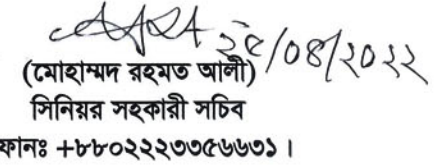 ২৫/০৪/২০২২
(মোহাম্মদ রহমত আলী)
সিনিয়র সহকারী সচিব
ফোনঃ +৮৮০২২২৩৩৫৬৬৩১।